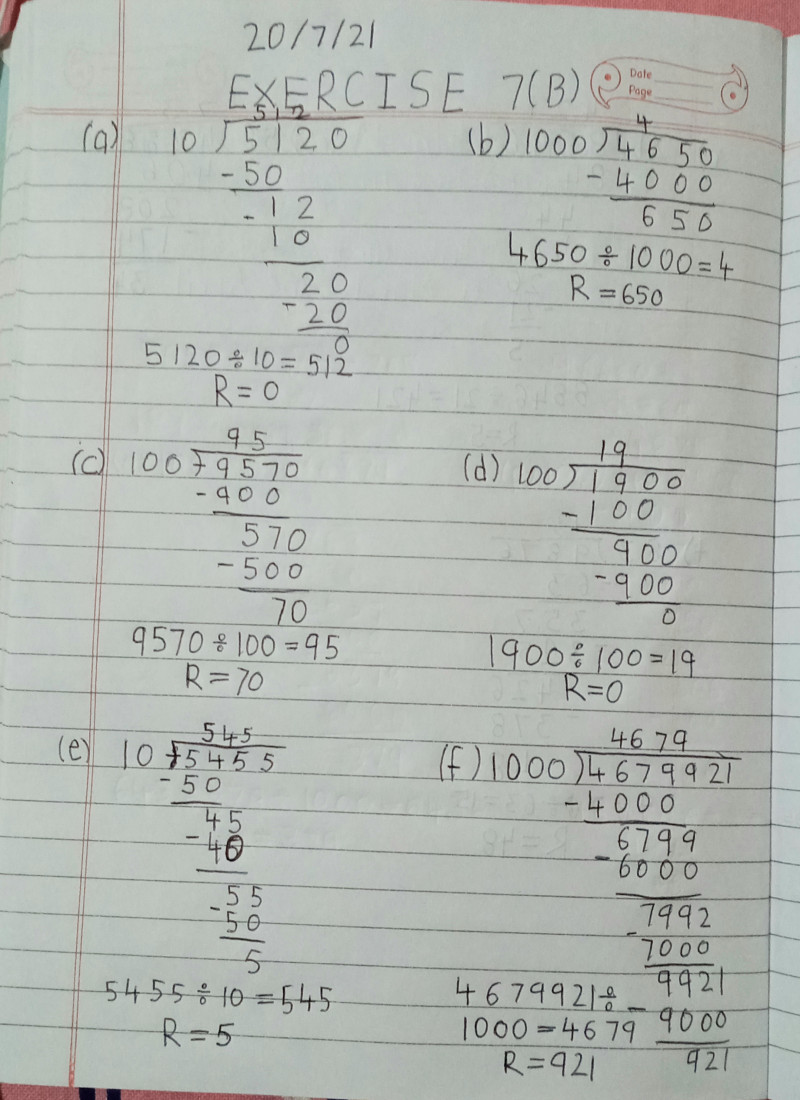 20/7/21
EXERCISE 7(B)
Date
Page
512
(a) 10 ) 5120
-50
- 12
10
20
- 20
0
5120 ÷ 10 = 512
R = 0
4
(b) 1000 ) 4650
- 4000
650
4650 ÷ 1000 = 4
R = 650
95
(c) 100 ) 9570
- 900
570
- 500
70
9570 ÷ 100 = 95
R = 70
19
(d) 100 ) 1900
- 100
900
- 900
0
1900 ÷ 100 = 19
R = 0
545
(e) 10 ) 5455
- 50
45
- 40
55
- 50
5
5455 ÷ 10 = 545
R = 5
4679
(f) 1000 ) 4679921
- 4000
6799
- 6000
7992
- 7000
9921
- 9000
921
4679921 ÷
1000 = 4679
R = 921